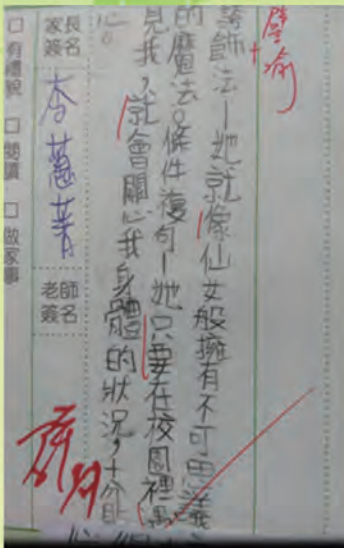 譬喻
誇飾法—她就像仙女般擁有不可思議
的魔法。條件複句—她只要在校園裡遇
見我,就會關心我身體的狀況,十分
心。
家長
簽名
李蕙菁
老師
簽名
□ 有禮貌 □ 閱讀 □ 做家事